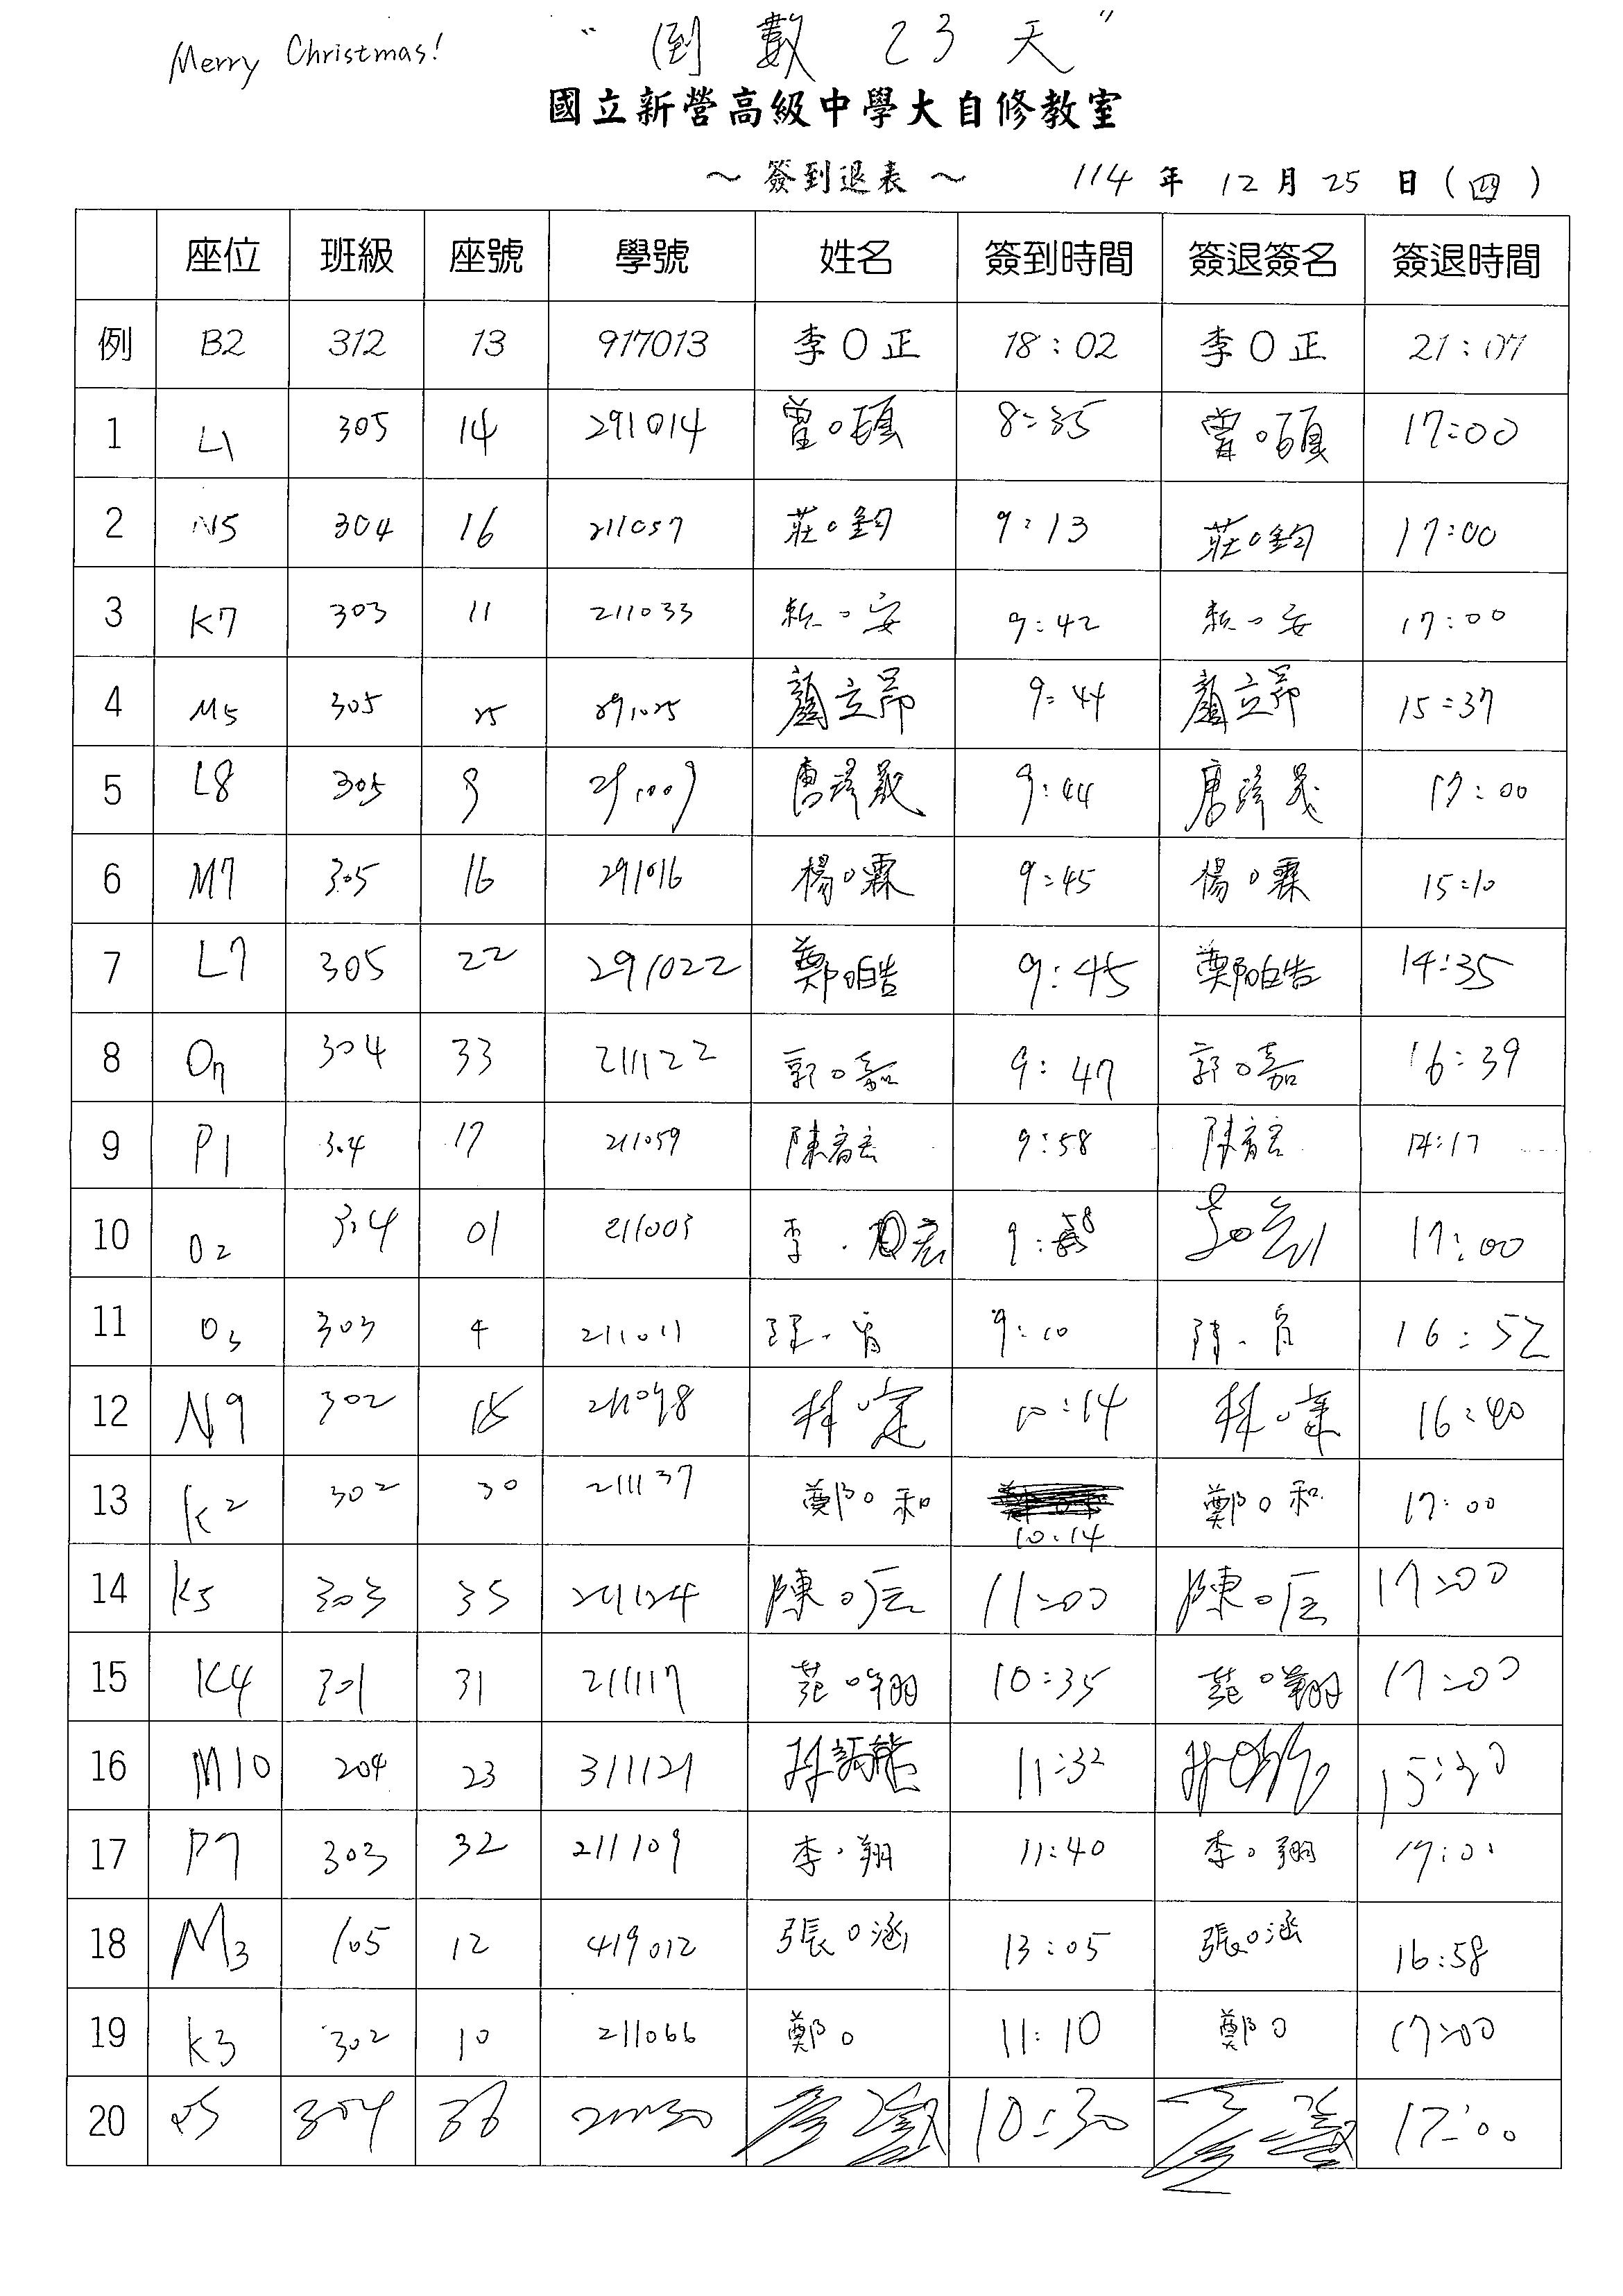 Merry Christmas! "倒數 23 天"
國立新營高級中學大自修教室
～ 簽到退表 ～ 114 年 12 月 25 日 (四)
座位 班級 座號 學號 姓名 簽到時間 簽退簽名 簽退時間
例 B2 312 13 917013 李O正 18:02 李O正 21:07
1 L1 305 14 291014 曾O頤 8:35 曾O頤 17:00
2 N5 304 16 211057 莊O鈞 9:13 莊O鈞 17:00
3 K7 303 11 211033 賴O安 9:42 賴O安 17:00
4 M5 305 25 291025 顏立昂 9:44 顏立昂 15:37
5 L8 305 9 291009 唐 9:44 唐 17:00
6 M7 305 16 291016 楊O霖 9:45 楊O霖 15:10
7 L7 305 22 291022 鄭O皓 9:45 鄭O皓 14:35
8 O7 304 33 211122 郭O嘉 9:47 郭O嘉 16:39
9 P1 304 17 211059 陳 9:58 陳 14:17
10 O2 304 01 211003 李 9:58 17:00
11 O3 303 4 211011 9:10 陳 16:52
12 N9 302 林O 10:14 林O 16:40
13 K2 302 30 211137 鄭O和 10:14 鄭O和 17:00
14 K5 303 35 211124 陳O 11:00 陳O 17:00
15 K4 301 31 211117 范O翔 10:35 范O翔 17:00
16 M10 204 23 311121 11:32 15:30
17 P7 303 32 211109 李O翔 11:40 李O翔 17:01
18 M3 105 12 419012 張O涵 13:05 張O涵 16:58
19 K3 302 10 211066 鄭O 11:10 鄭O 17:00
20 304 36 10:30 17:00